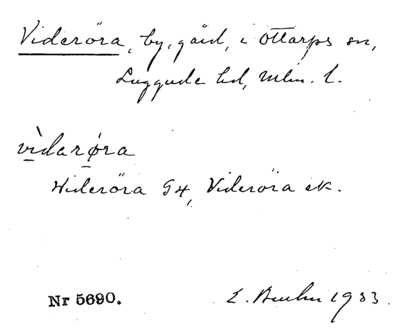 Videröra, by, gård, i Ottarps sn,
Luggude hd, Mlm. l.
vìdarøra
Wideröra G4, Videröra ek.
Nr 5690. 1933